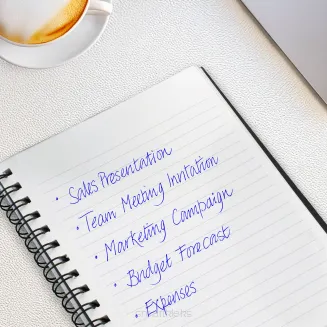 • Sales Presentation
• Team Meeting Invitation
• Marketing Campaign
• Budget Forecast
• Expenses